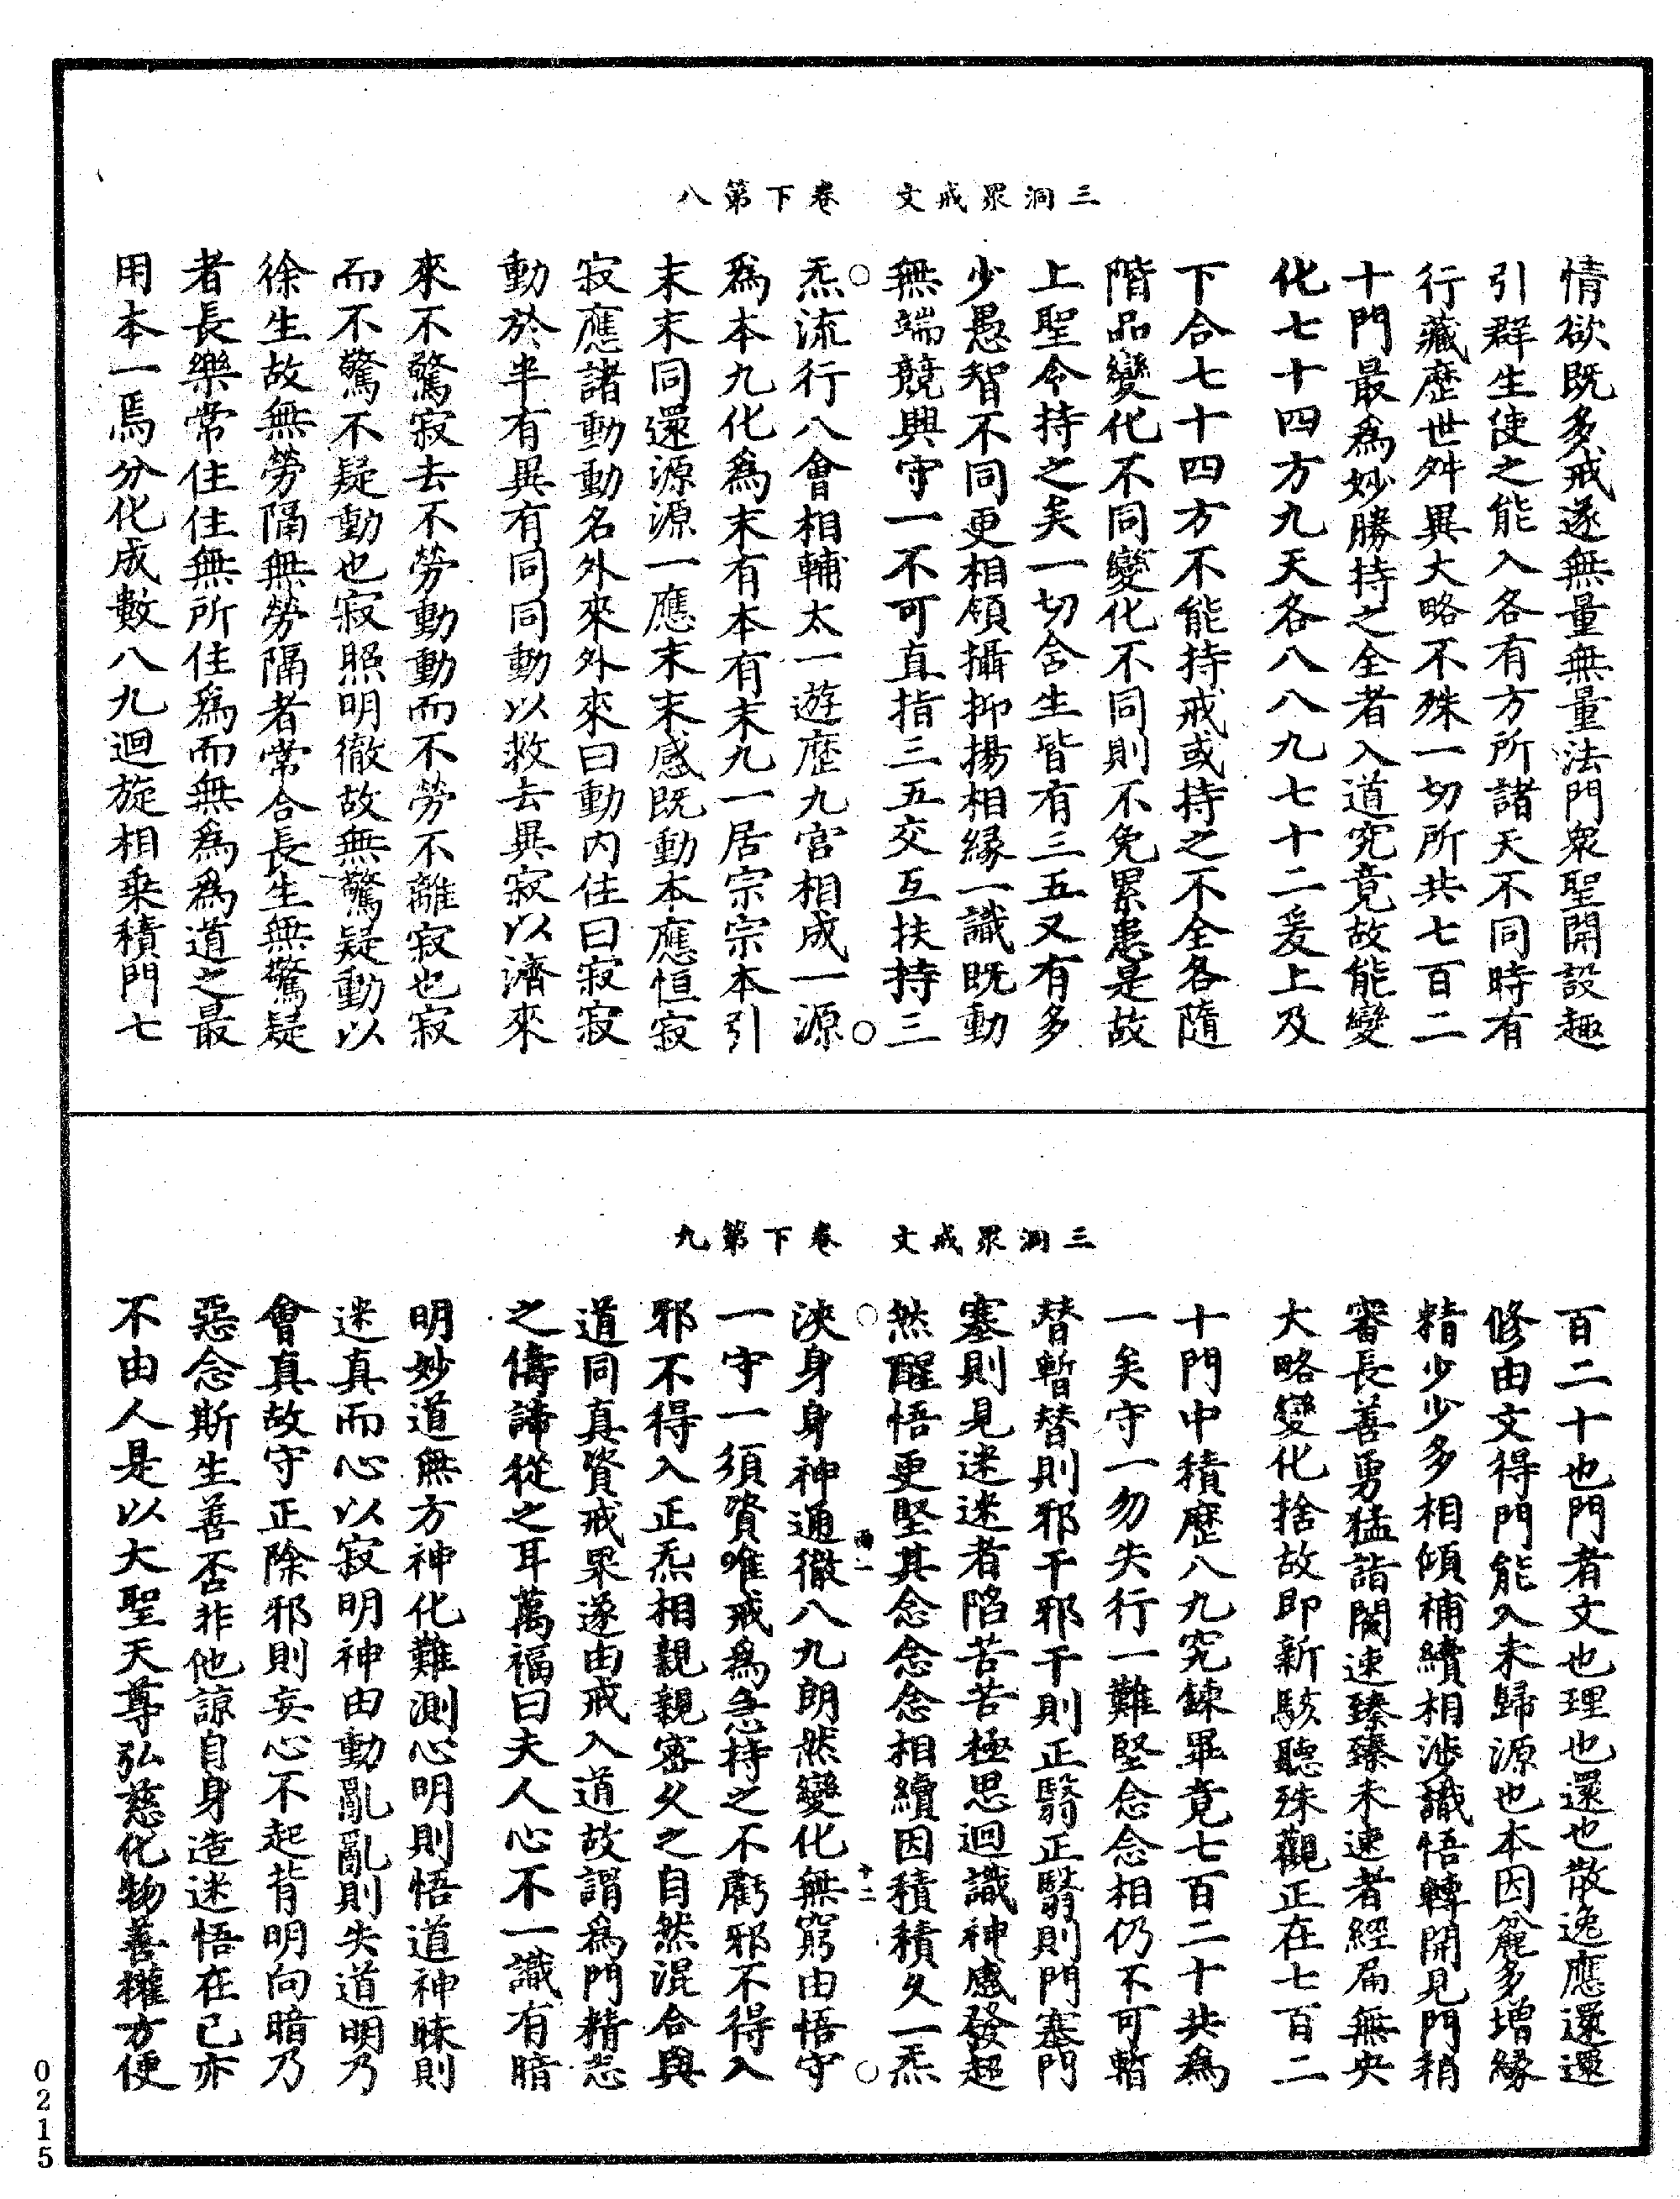 三洞衆戒文　卷下第八
情欲既多戒遂無量無量法門衆聖開設趣
引群生使之能入各有方所諸天不同時有
行藏歷世舛異大略不殊一切所共七百二
十門最爲妙勝持之全者入道究竟故能變
化七十四方九天各八八九七十二爰上及
下合七十四方不能持戒或持之不全各隨
階品變化不同變化不同則不免累患是故
上聖令持之矣一切含生皆有三五又有多
少愚智不同更相領攝抑揚相緣一識既動
無端競興守一不可直指三五交互扶持三
炁流行八會相輔太一遊歷九宮相成一源
爲本九化爲末有本有末九一居宗宗本引
末末同還源源一應末末感既動本應恒寂
寂應諸動動名外來外來曰動内住曰寂寂
動於半有異有同同動以救去異寂以濟來
來不驚寂去不勞動動而不勞不離寂也寂
而不驚不疑動也寂照明徹故無驚疑動以
徐生故無勞隔無勞隔者常合長生無驚疑
者長樂常住住無所住爲而無爲爲道之最
用本一焉分化成數八九迴旋相乘積門七
三洞衆戒文　卷下第九
百二十也門者文也理也還也散逸應還還
修由文得門能入未歸源也本因麄多增緣
精少少多相傾補續相涉識悟轉開見門稍
審長善勇猛詣闕速臻臻未速者經扃無央
大略變化捨故即新駭聽殊觀正在七百二
十門中積歷八九究鍊畢竟七百二十共爲
一矣守一勿失行一難堅念念相仍不可暫
替暫替則邪干邪干則正翳正翳則門塞門
塞則見迷迷者陷苦苦極思迴識神感發超
然醒悟更堅其念念念相續因積積久一炁
浹身身神通徹八九朗然變化無窮由悟守
一守一須資唯戒爲急持之不虧邪不得入
邪不得入正炁相親親密久之自然混合與
道同真資戒果遂由戒入道故謂爲門精志
之儔諦從之耳萬福曰夫人心不一識有暗
明妙道無方神化難測心明則悟道神昧則
迷真而心以寂明神由動亂亂則失道明乃
會真故守正除邪則妄心不起背明向暗乃
惡念斯生善否非他諒自身造迷悟在己亦
不由人是以大聖天尊弘慈化物善權方便
十二
0215